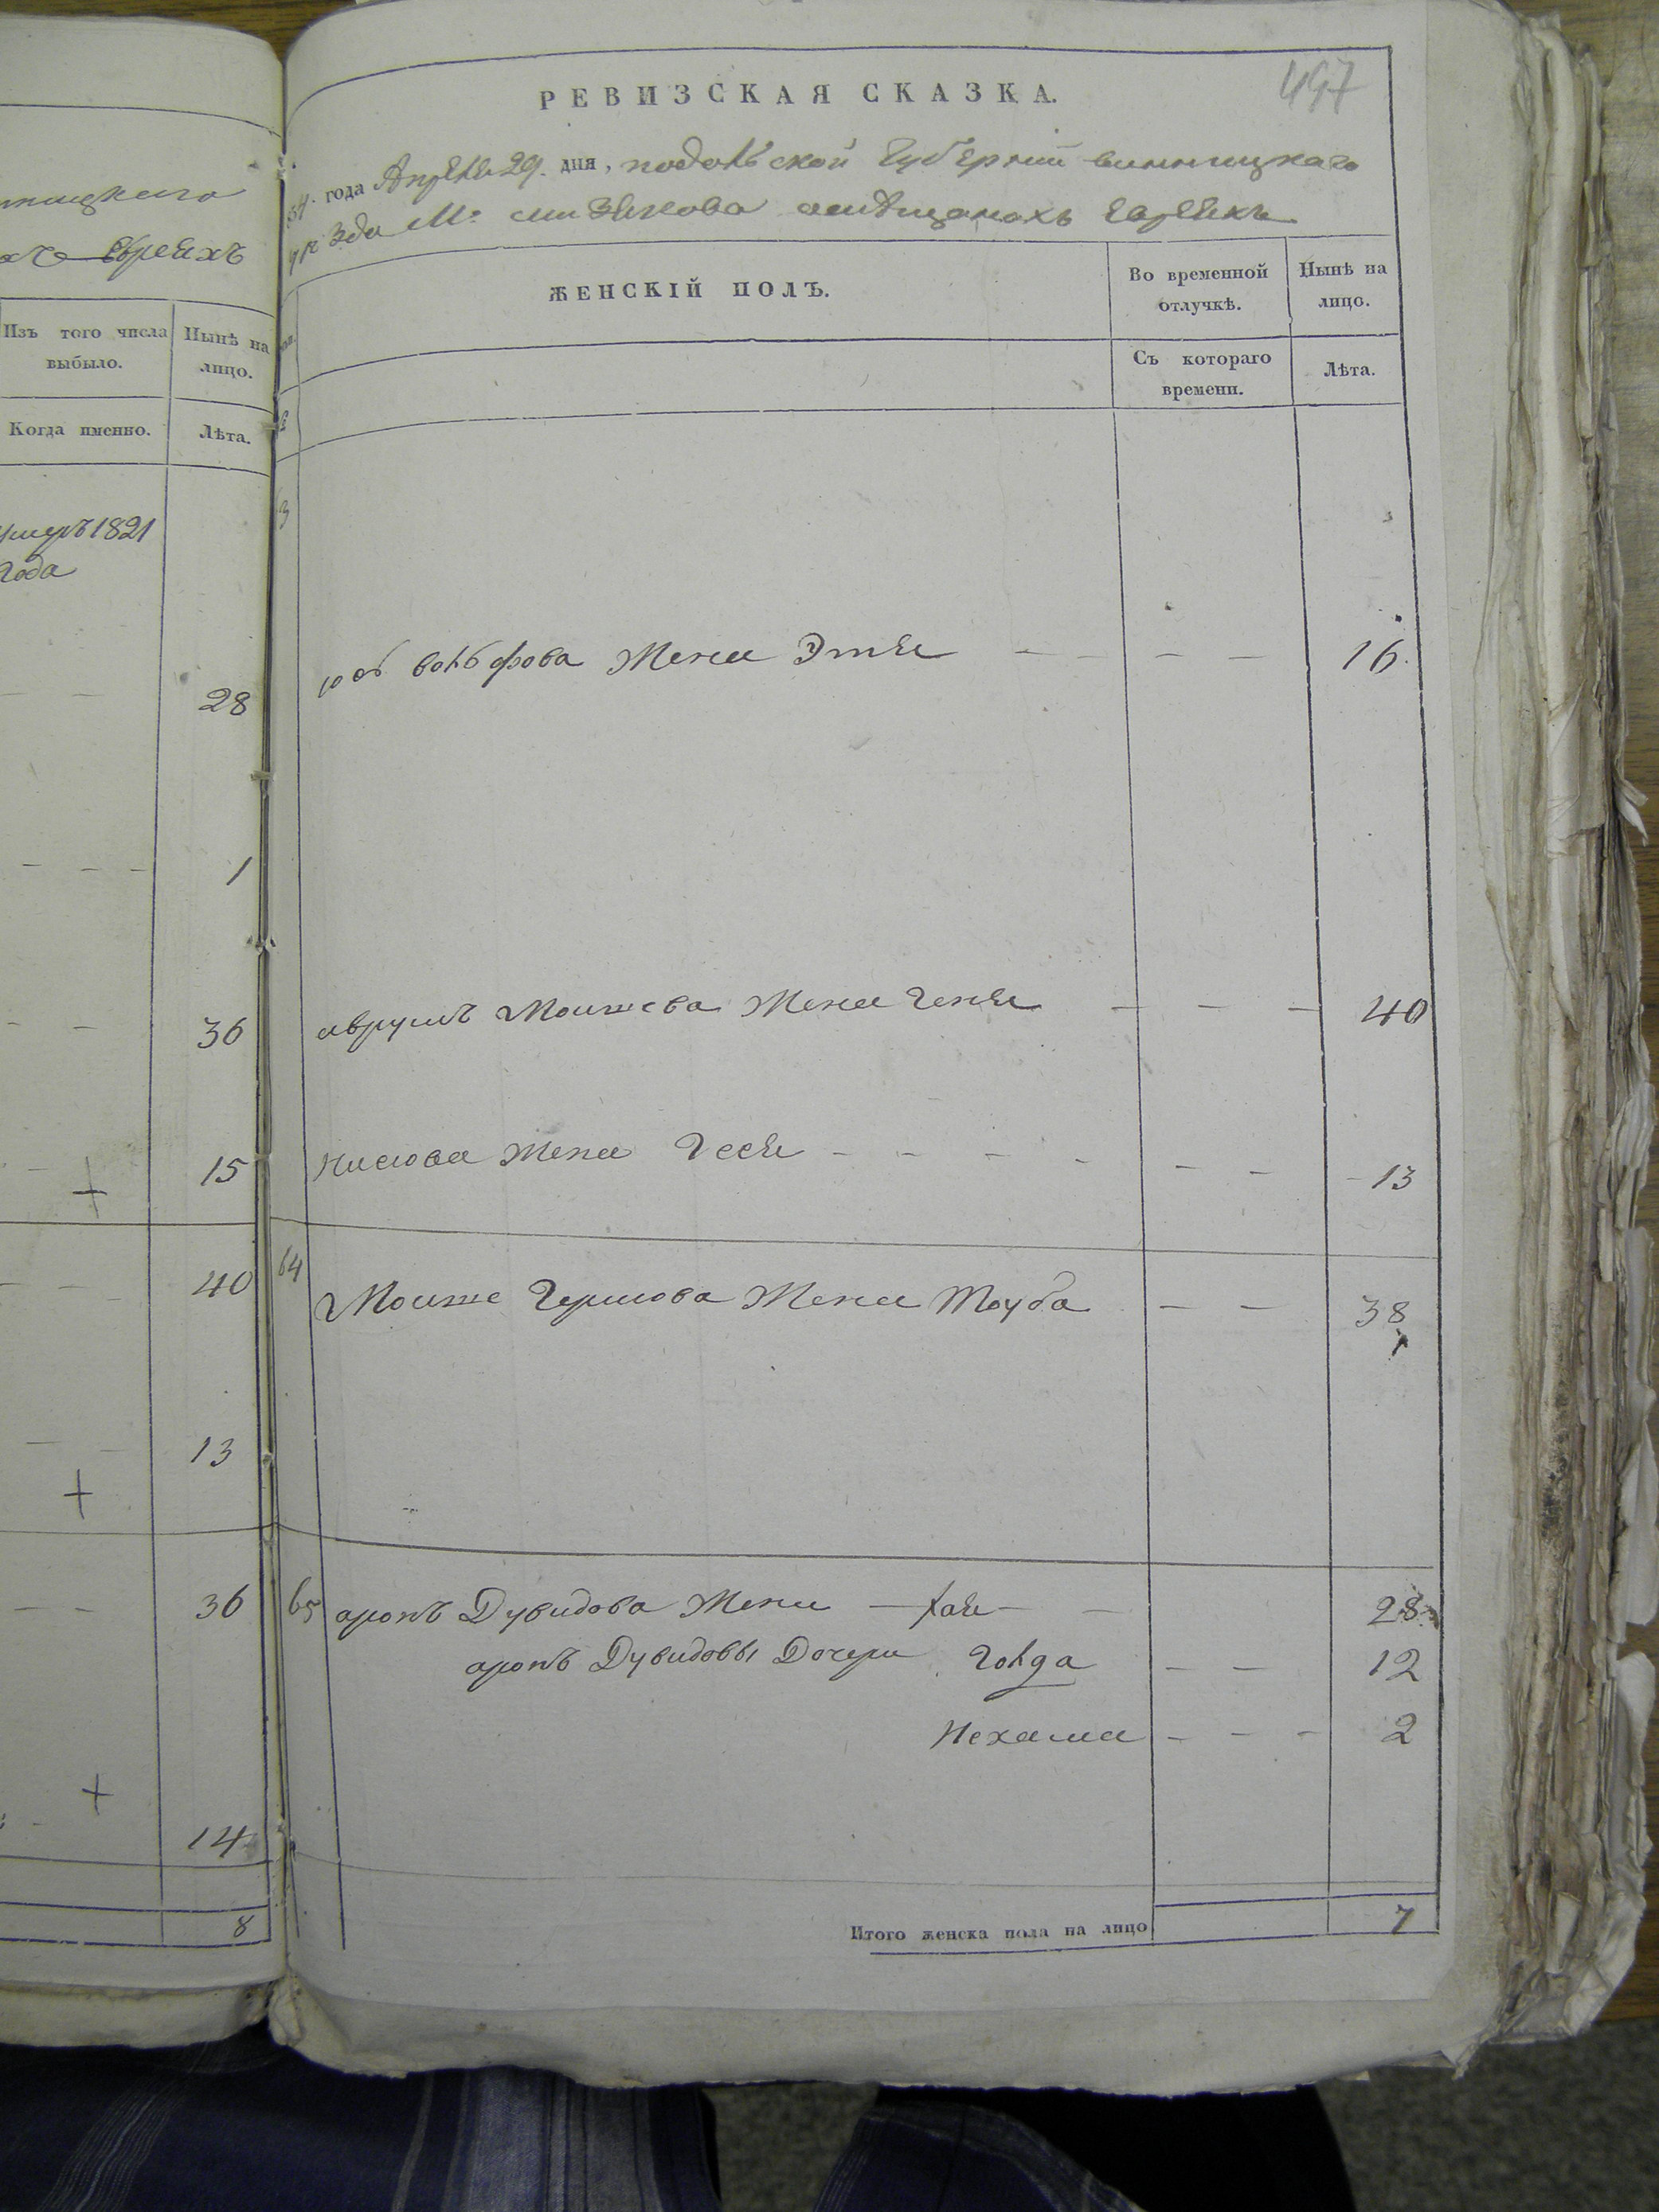 нницкаго
хъ евреяхъ
Изъ того числа
выбыло.
Нынѣ на
лицо.
Когда именно.
Лѣта.
умеръ 1821
года
28
1
36
15
40
13
36
14
8
497
РЕВИЗСКАЯ СКАЗКА.
34. года Апреля 29. дня, подольской Губерніи винницкаго
уѣзда М. мизякова мещанахъ евреяхъ
ЖЕНСКІЙ ПОЛЪ.
Во временной
отлучкѣ.
Нынѣ на
лицо.
Съ котораго
времени.
Лѣта.
3
вольфова Жена Этя — — — 16.
аврумъ Мошкова Жена Геня — — — 40
Нисюва Жена Геся — — — — — — 13
64 Мошке Гершова Жена Тоуба — — 38
65 аронъ Дувидова Жена — хая — — 28
аронъ Дувидовы Дочери Голда — — 12
Нехама — — — 2
Итого женска пола на лицо 7